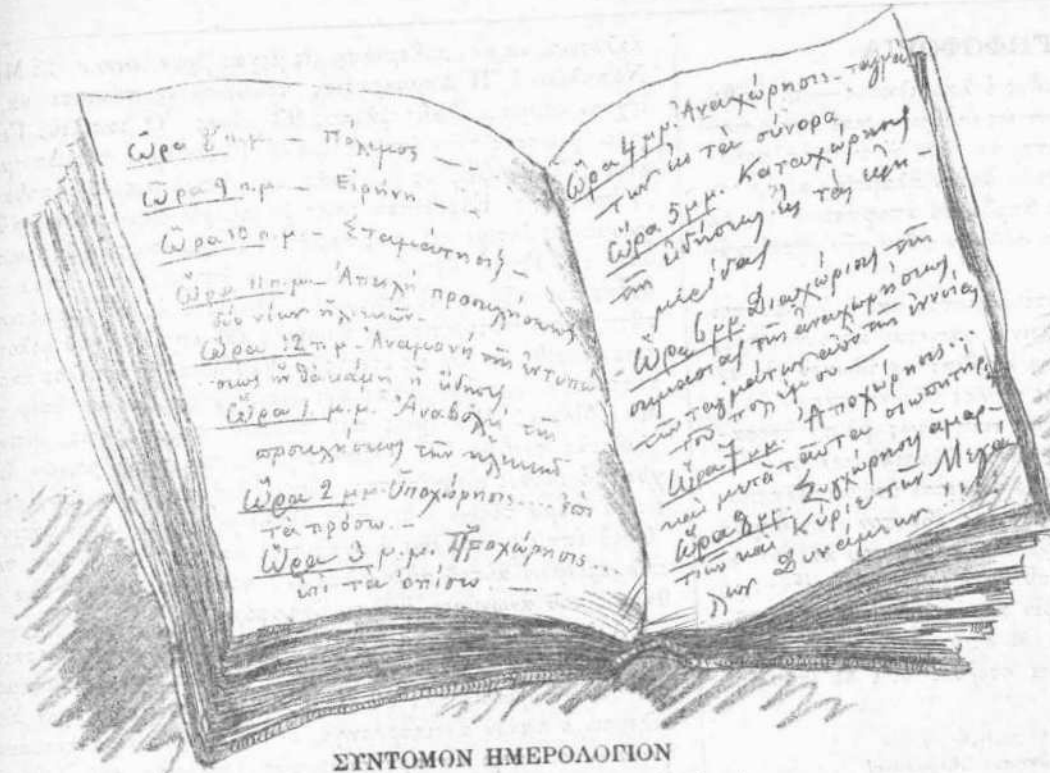 Ὥρα 8 π.μ. — Πόλεμος —
Ὥρα 9 π.μ. — Εἰρήνη —
Ὥρα 10 π.μ. — Σταμάτησις —
Ὥρα 11 π.μ. — Ἀπειλὴ προσκλήσεως
δύο νέων ἡλικιῶν.
Ὥρα 12 π.μ. Ἀναμονὴ τῆς ἐντυπώ-
σεως ἣν θὰ κάμῃ ἡ εἴδησις
Ὥρα 1. μ.μ. Ἀναβολὴ τῆς
προσκλήσεως τῶν ἡλικιῶν
Ὥρα 2 μ.μ. Ὑποχώρησις... ἐπὶ
τὰ πρόσω. —
Ὥρα 3 μ.μ. Προχώρησις...
ἐπὶ τὰ ὀπίσω —
Ὥρα 4 μμ. Ἀναχώρησις ταγμά-
των εἰς τὰ σύνορα
Ὥρα 5 μμ. Καταχώρησις
τῆς εἰδήσεως εἰς τὰς ἐφη-
μερίδας
Ὥρα 6 μμ Διαχώρισις τῆς
σημασίας τῆς ἀναχωρήσεως
τῶν ταγμάτων ἀπὸ τῆς ἐννοίας
τοῦ πολέμου.
Ὥρα 7 μμ Ἀποχώρησις...
καὶ μετὰ ταῦτα σιωπητήρ.
Ὥρα 8 μμ. Συγχώρησις ἁμαρ-
τιῶν καὶ Κύριε τῶν Μεγά-
λων Δυνάμεων
ΣΥΝΤΟΜΟΝ ΗΜΕΡΟΛΟΓΙΟΝ